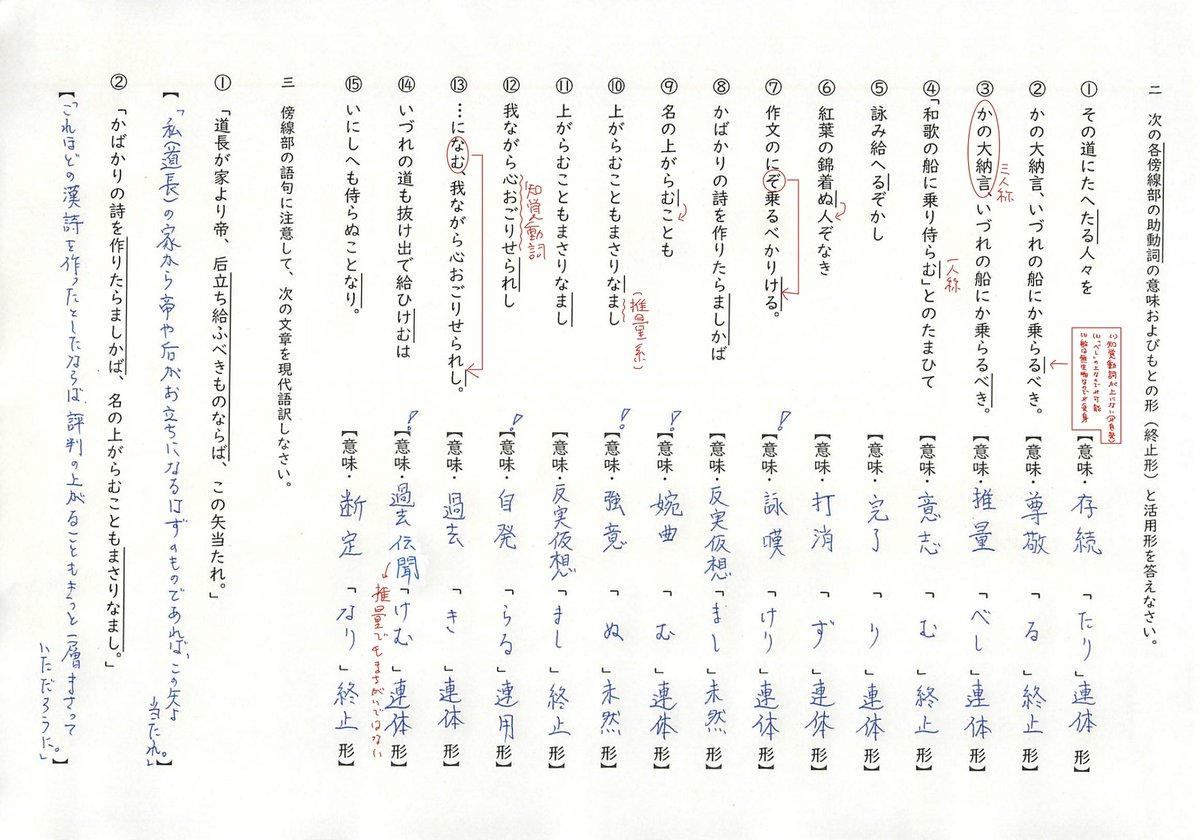 二　次の各傍線部の助動詞の意味およびもとの形（終止形）と活用形を答えなさい。
① その道にたへたる人々を【意味・存続「たり」連体形】
② かの大納言、いづれの船にか乗らるべき。【意味・尊敬「る」終止形】
(1)知覚動詞が上にない(自発)
③ かの大納言、いづれの船にか乗らるべき。【意味・推量「べし」連体形】
三人称
④ 「和歌の船に乗り侍らむ」とのたまひて【意味・意志「む」終止形】
一人称
⑤ 詠み給へるぞかし【意味・完了「り」連体形】
⑥ 紅葉の錦着ぬ人ぞなき【意味・打消「ず」連体形】
⑦ 作文のにぞ乗るべかりける。【意味・詠嘆「けり」連体形】
⑧ かばかりの詩を作りたらましかば【意味・反実仮想「まし」未然形】
⑨ 名の上がらむことも【意味・婉曲「む」連体形】
⑩ 上がらむこともまさりなまし【意味・強意「ぬ」未然形】
(推量系)
⑪ 上がらむこともまさりなまし【意味・反実仮想「まし」終止形】
⑫ 我ながら心おごりせられし【意味・自発「らる」連用形】
知覚動詞
⑬ …になむ、我ながら心おごりせられし。【意味・過去「き」連体形】
⑭ いづれの道も抜け出で給ひけむは【意味・過去伝聞「けむ」連体形】
推量でもまちがいではない
⑮ いにしへも侍らぬことなり。【意味・断定「なり」終止形】
三　傍線部の語句に注意して、次の文章を現代語訳しなさい。
① 「道長が家より帝、后立ち給ふべきものならば、この矢当たれ。」
【「私(道長)の家から帝や后がお立ちになるはずのものであれば、この矢よ
当たれ。」】
② 「かばかりの詩を作りたらましかば、名の上がらむこともまさりなまし。」
【「これほどの漢詩を作ったとしたならば、評判の上がることもきっと一層まさって
いただろうに。」】